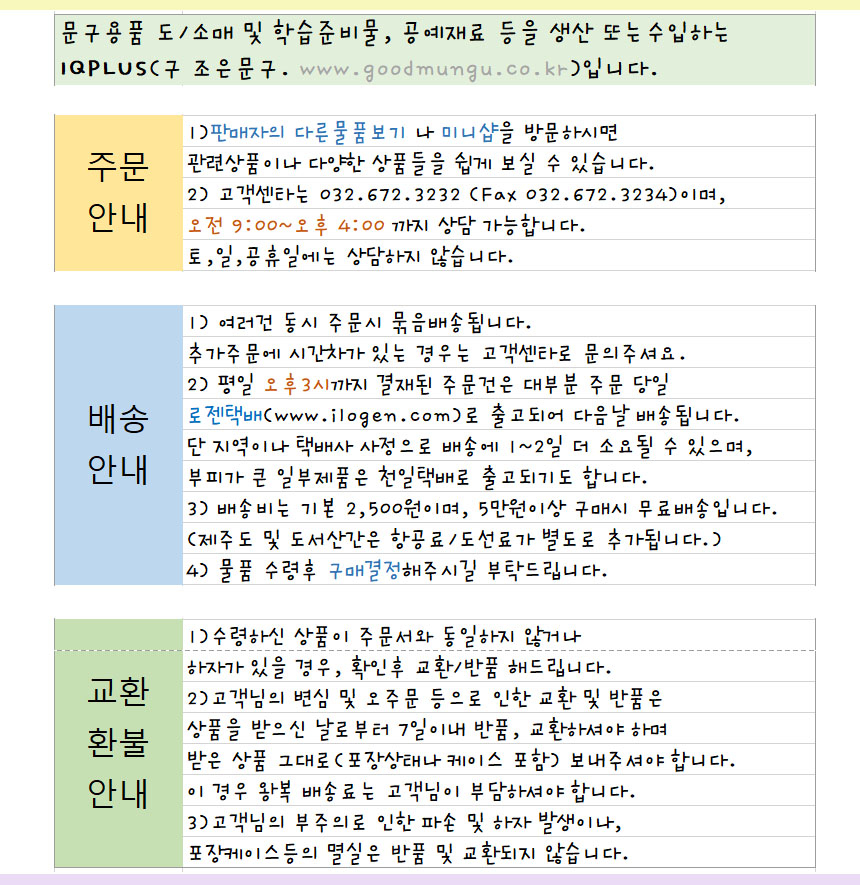 문구용품 도/소매 및 학습준비물, 공예재료 등을 생산 또는수입하는
IQPLUS(구 조은문구. www.goodmungu.co.kr)입니다.
주문
안내
1)판매자의 다른물품보기 나 미니샵을 방문하시면
관련상품이나 다양한 상품들을 쉽게 보실 수 있습니다.
2) 고객센타는 032.672.3232 (Fax 032.672.3234)이며,
오전 9:00~오후 4:00 까지 상담 가능합니다.
토,일,공휴일에는 상담하지 않습니다.
배송
안내
1) 여러건 동시 주문시 묶음배송됩니다.
추가주문에 시간차가 있는 경우는 고객센타로 문의주셔요.
2) 평일 오후3시까지 결재된 주문건은 대부분 주문 당일
로젠택배(www.ilogen.com)로 출고되어 다음날 배송됩니다.
단 지역이나 택배사 사정으로 배송에 1~2일 더 소요될 수 있으며,
부피가 큰 일부제품은 천일택배로 출고되기도 합니다.
3) 배송비는 기본 2,500원이며, 5만원이상 구매시 무료배송입니다.
(제주도 및 도서산간은 항공료/도선료가 별도로 추가됩니다.)
4) 물품 수령후 구매결정해주시길 부탁드립니다.
교환
환불
안내
1)수령하신 상품이 주문서와 동일하지 않거나
하자가 있을 경우, 확인후 교환/반품 해드립니다.
2)고객님의 변심 및 오주문 등으로 인한 교환 및 반품은
상품을 받으신 날로부터 7일이내 반품, 교환하셔야 하며
받은 상품 그대로(포장상태나 케이스 포함) 보내주셔야 합니다.
이 경우 왕복 배송료는 고객님이 부담하셔야 합니다.
3)고객님의 부주의로 인한 파손 및 하자 발생이나,
포장케이스등의 멸실은 반품 및 교환되지 않습니다.